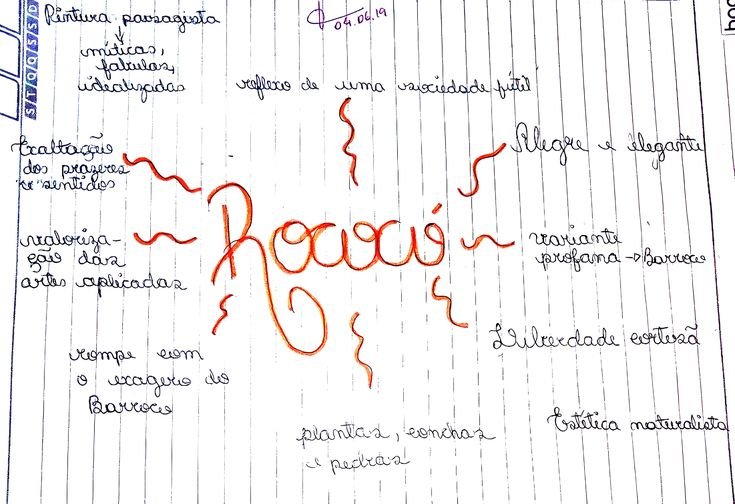 Pintura paisagista
04.06.19
míticas,
fabulas,
idealizadas
reflexo de uma sociedade fútil
Exaltação
dos prazeres
e sentidos
Alegre e elegante
Rococó
valoriza-
ção das
artes aplicadas
variante
profana → Barroco
Liberdade cortesã
rompe com
o exagero do
Barroco
Estética naturalista
plantas, conchas
e pedras
S T Q Q S S D